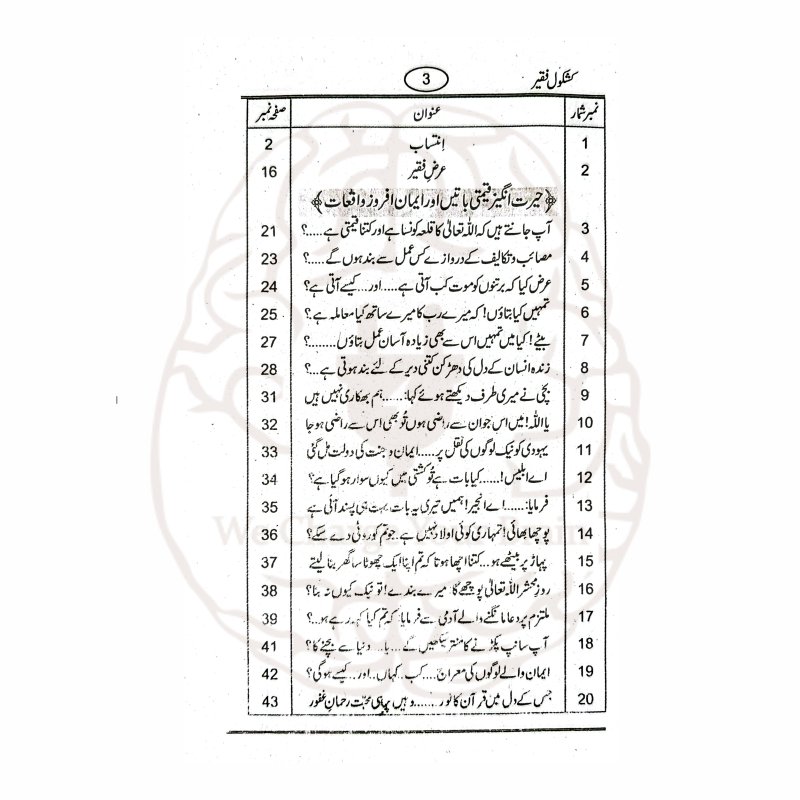 کشکول فقیر 3
نمبر شمار عنوان صفحہ نمبر
1 اِنتساب 2
2 عرضِ فقیر 16
﴿حیرت انگیز قیمتی باتیں اور ایمان افروز واقعات﴾
3 آپ جانتے ہیں کہ اللہ تعالیٰ کا قلعہ کونسا ہے اور کتنا قیمتی ہے.....؟ 21
4 مصائب و تکالیف کے دروازے کس عمل سے بند ہوں گے.....؟ 23
5 عرض کیا کہ برتنوں کو موت کب آتی ہے.....اور...کیسے آتی ہے؟ 24
6 تمہیں کیا بتاؤں! کہ میرے رب کا میرے ساتھ کیا معاملہ ہے...؟ 25
7 بیٹے! کیا میں تمہیں اس سے بھی زیادہ آسان عمل بتاؤں........؟ 27
8 زندہ انسان کے دل کی دھڑکن کتنی دیر کے لئے بند ہوتی ہے...؟ 28
9 بچی نے میری طرف دیکھتے ہوئے کہا:......ہم بھکاری نہیں ہیں 31
10 یااللہ! میں اس جوان سے راضی ہوں تُو بھی اس سے راضی ہوجا 32
11 یہودی کو نیک لوگوں کی نقل پر.....ایمان و جنت کی دولت مل گئی 33
12 اے ابلیس!......کیا بات ہے تُو کشتی میں کیوں سوار ہوگیا ہے؟ 34
13 فرمایا:......اے انجیر! ہمیں تیری یہ بات بہت ہی پسند آئی ہے 35
14 پوچھا بھائی! تمہاری کوئی اولاد نہیں ہے جو تم کو روٹی دے سکے؟ 36
15 پہاڑ پر بیٹھے ہو...کتنا اچھا ہوتا کہ تم اپنا ایک چھوٹا سا گھر بنا لیتے 37
16 روزِ محشر اللہ تعالیٰ پوچھے گا: میرے بندے! تُو نیک کیوں نہ بنا؟ 38
17 ملتزم پر دعا مانگنے والے آدمی سے فرمایا: کہ تم کیا کہہ رہے ہو...؟ 39
18 آپ سانپ پکڑنے کا منتر سیکھیں گے...یا...دنیا سے بچنے کا؟ 41
19 ایمان والے لوگوں کی معراج....کب..کہاں..اور..کیسے ہوگی؟ 42
20 جس کے دل میں قرآن کا نور.......وہیں پہ ہی محبت رحمانِ غفور 43
We